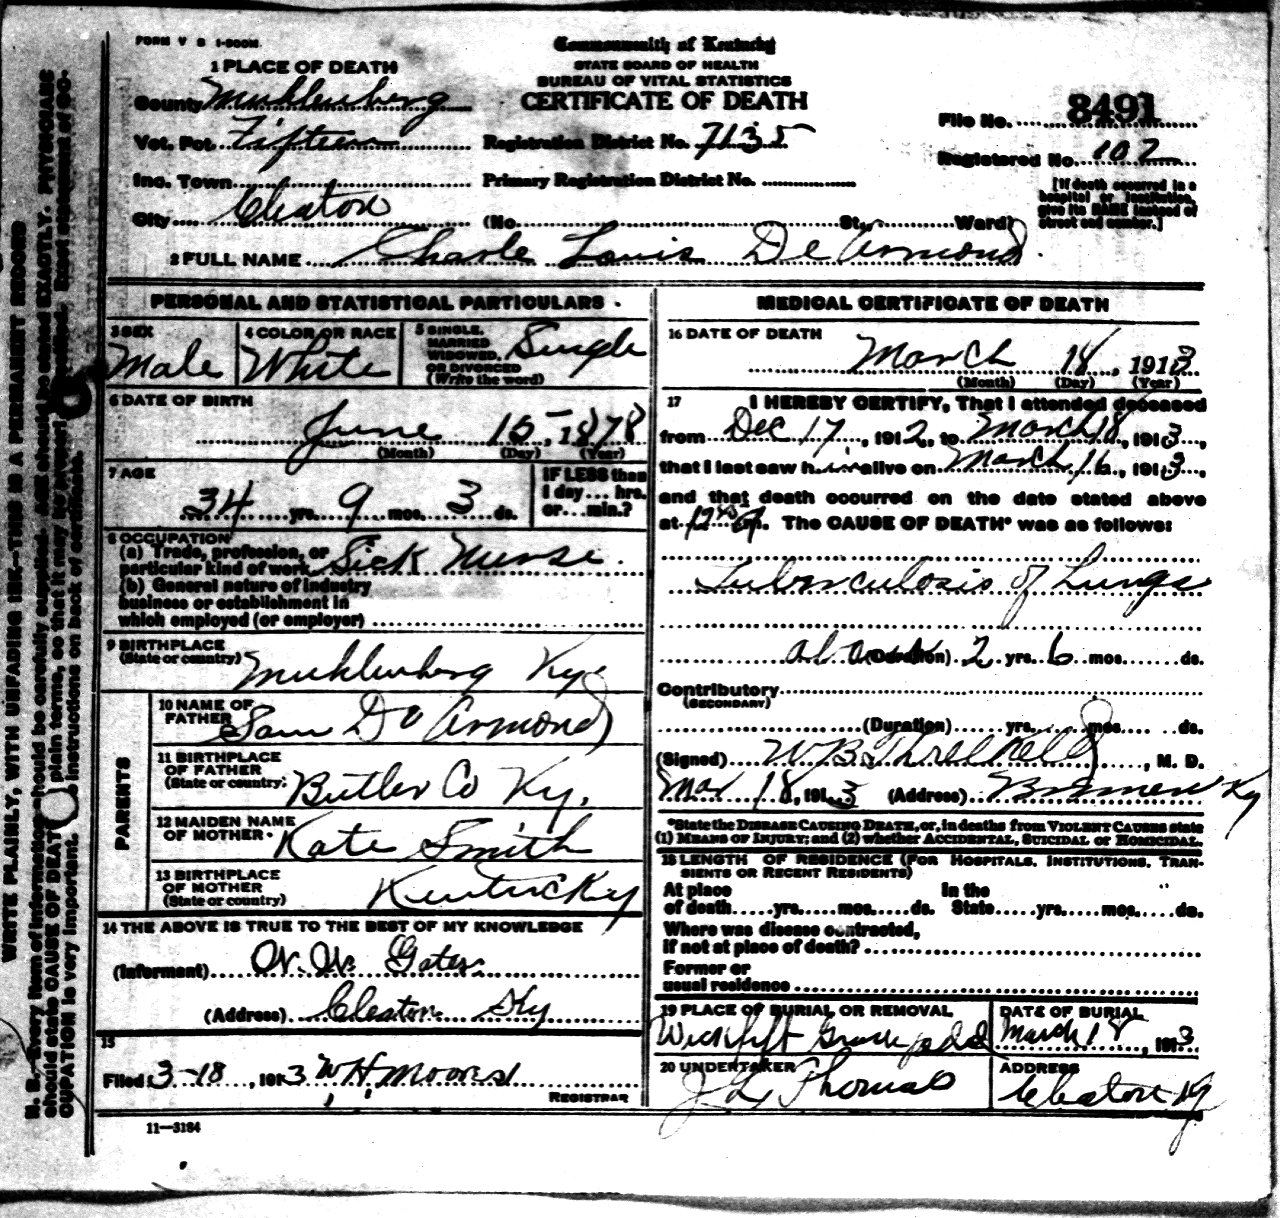 FORM V S 1-500M
Commonwealth of Kentucky
STATE BOARD OF HEALTH
BUREAU OF VITAL STATISTICS
CERTIFICATE OF DEATH
1 PLACE OF DEATH
County Muhlenberg
Vot. Pct. Fifteen
Registration District No. 7135
File No. 8491
Registered No. 107
Inc. Town
Primary Registration District No.
[If death occurred in a hospital or institution, give its NAME instead of street and number.]
City Cleaton (No. St., Ward)
2 FULL NAME Charle Louis De Armond
PERSONAL AND STATISTICAL PARTICULARS
3 SEX Male
4 COLOR OR RACE White
5 SINGLE, MARRIED WIDOWED, OR DIVORCED (Write the word) Single
6 DATE OF BIRTH
June 15, 1878
(Month) (Day) (Year)
7 AGE
34 yrs. 9 mos. 3 ds.
IF LESS than 1 day... hrs. or...min.?
8 OCCUPATION
(a) Trade, profession, or particular kind of work Sick Nurse
(b) General nature of industry business or establishment in which employed (or employer)
9 BIRTHPLACE (State or country) Muhlenberg Ky.
PARENTS
10 NAME OF FATHER Sam De Armond
11 BIRTHPLACE OF FATHER (State or country) Butler Co Ky.
12 MAIDEN NAME OF MOTHER Kate Smith
13 BIRTHPLACE OF MOTHER (State or country) Kentucky
14 THE ABOVE IS TRUE TO THE BEST OF MY KNOWLEDGE
(Informant) W. W. Gates
(Address) Cleaton Ky
15
Filed 3-18, 1913 W H Moore
REGISTRAR
11—3184
MEDICAL CERTIFICATE OF DEATH
16 DATE OF DEATH
March 18, 1913
(Month) (Day) (Year)
17 I HEREBY CERTIFY, That I attended deceased
from Dec 17, 1912, to March 18, 1913,
that I last saw him alive on March 16, 1913,
and that death occurred on the date stated above
at The CAUSE OF DEATH* was as follows:
Tuberculosis of Lungs
about (Duration) 2 yrs. 6 mos. ds.
Contributory (SECONDARY)
(Duration) yrs. mos. ds.
(Signed) W B Threlkeld, M. D.
Mar 18, 1913 (Address) Bremen Ky
*State the DISEASE CAUSING DEATH, or, in deaths from VIOLENT CAUSES state
(1) MEANS OF INJURY; and (2) whether ACCIDENTAL, SUICIDAL or HOMICIDAL.
18 LENGTH OF RESIDENCE (FOR HOSPITALS, INSTITUTIONS, TRANSIENTS OR RECENT RESIDENTS)
At place of death.....yrs.....mos.....ds. In the State.....yrs.....mos.....ds.
Where was disease contracted, if not at place of death?
Former or usual residence
19 PLACE OF BURIAL OR REMOVAL
DATE OF BURIAL
March 18, 1913
20 UNDERTAKER
J L Thomas
ADDRESS
Cleaton Ky
WRITE PLAINLY, WITH UNFADING INK—THIS IS A PERMANENT RECORD